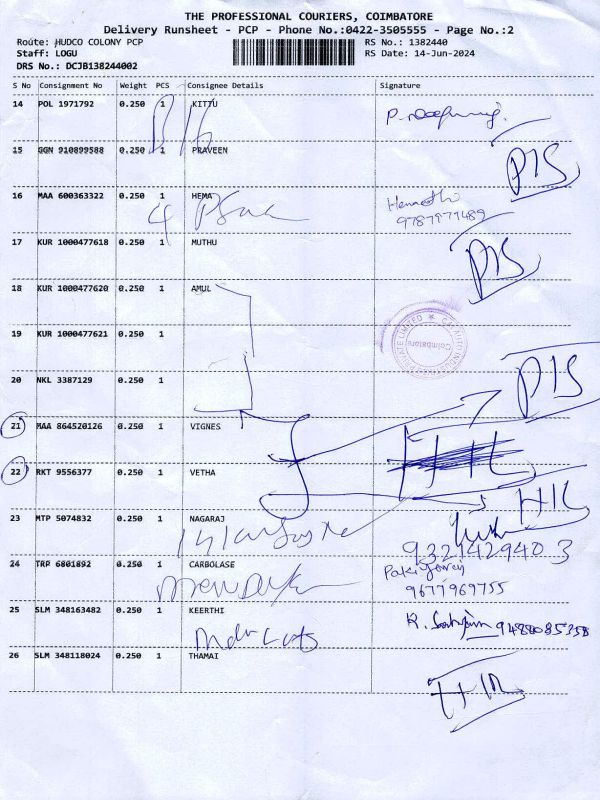 THE PROFESSIONAL COURIERS, COIMBATORE
Delivery Runsheet - PCP - Phone No.:0422-3505555 - Page No.:2
Route: HUDCO COLONY PCP RS No.: 1382440
Staff: LOGU RS Date: 14-Jun-2024
DRS No.: DCJB138244002
S No Consignment No Weight PCS Consignee Details Signature
14 POL 1971792 0.250 1 KITTU
15 GGN 910899588 0.250 1 PRAVEEN PIS
16 MAA 600363322 0.250 1 HEMA
9787977489
17 KUR 1000477618 0.250 1 MUTHU PIS
18 KUR 1000477620 0.250 1 AMUL
19 KUR 1000477621 0.250 1
Coimbatore
20 NKL 3387129 0.250 1 PIS
21 MAA 864520126 0.250 1 VIGNES
22 RKT 9556377 0.250 1 VETHA
23 MTP 5074832 0.250 1 NAGARAJ
9321429403
24 TRP 6801892 0.250 1 CARBOLASE
9677969755
25 SLM 348163482 0.250 1 KEERTHI
9488085358
26 SLM 348118024 0.250 1 THAMAI